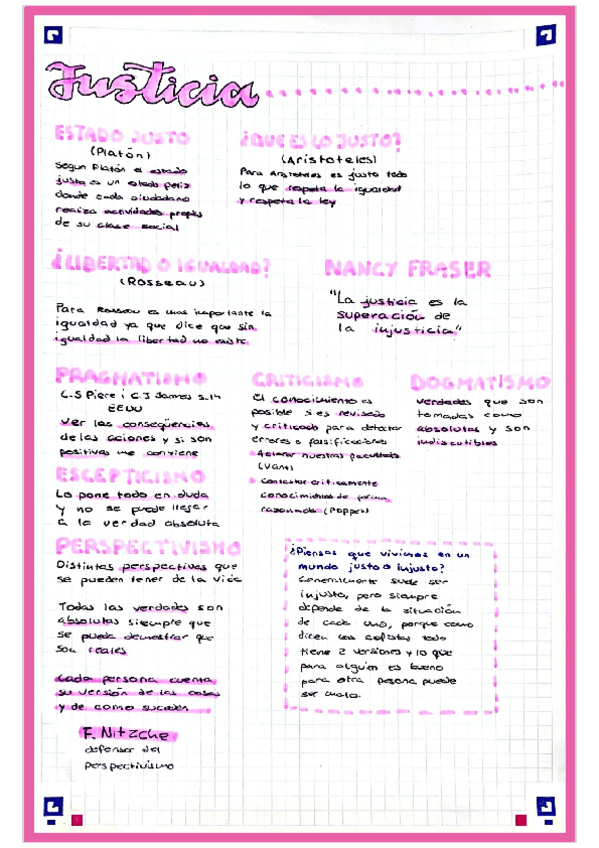 Justicia
ESTADO JUSTO
(Platón)
Segun Platón el estado
justo es un estado feliz
donde cada ciudadano
realiza actividades propias
de su clase social
¿QUE ES LO JUSTO?
(Aristoteles)
Para Aristoteles es justo todo
lo que respeta la igualdad
y respeta la ley
¿LIBERTAD O IGUALDAD?
(Rosseau)
Para Rosseau es mas importante la
igualdad ya que dice que sin
igualdad la libertad no existe
NANCY FRASER
"La justicia es la
superación de
la injusticia"
PRAGMATISMO
C.S Piere i C.J James s.19
EEUU
ver las conseqüencias
de las aciones y si son
positivas me conviene
CRITICISMO
El conocimiento es
posible si es revisado
y criticado para detectar
errores o falsificaciones
Aclarar nuestras facultades
(Kant)
Contactar criticamente
conocimientos de forma
razonada (Popper)
DOGMATISMO
verdades que son
tomadas como
absolutas y son
indiscutibles
ESCEPTICISMO
Lo pone todo en duda
y no se puede llegar
a la verdad absoluta
PERSPECTIVISMO
Distintas perspectivas que
se pueden tener de la vida
Todas las verdades son
absolutas siempre que
se pueda demostrar que
son reales
Cada persona cuenta
su versión de las cosas
y de como suceden
F. Nitzche
defensor del
perspectivismo
¿Piensas que vivimos en un
mundo justo o injusto?
Generalmente suele ser
injusto, pero siempre
depende de la situación
de cada uno, porque como
dicen los sofistas todo
tiene 2 versiones y lo que
para alguien es bueno
para otra persona puede
ser malo.